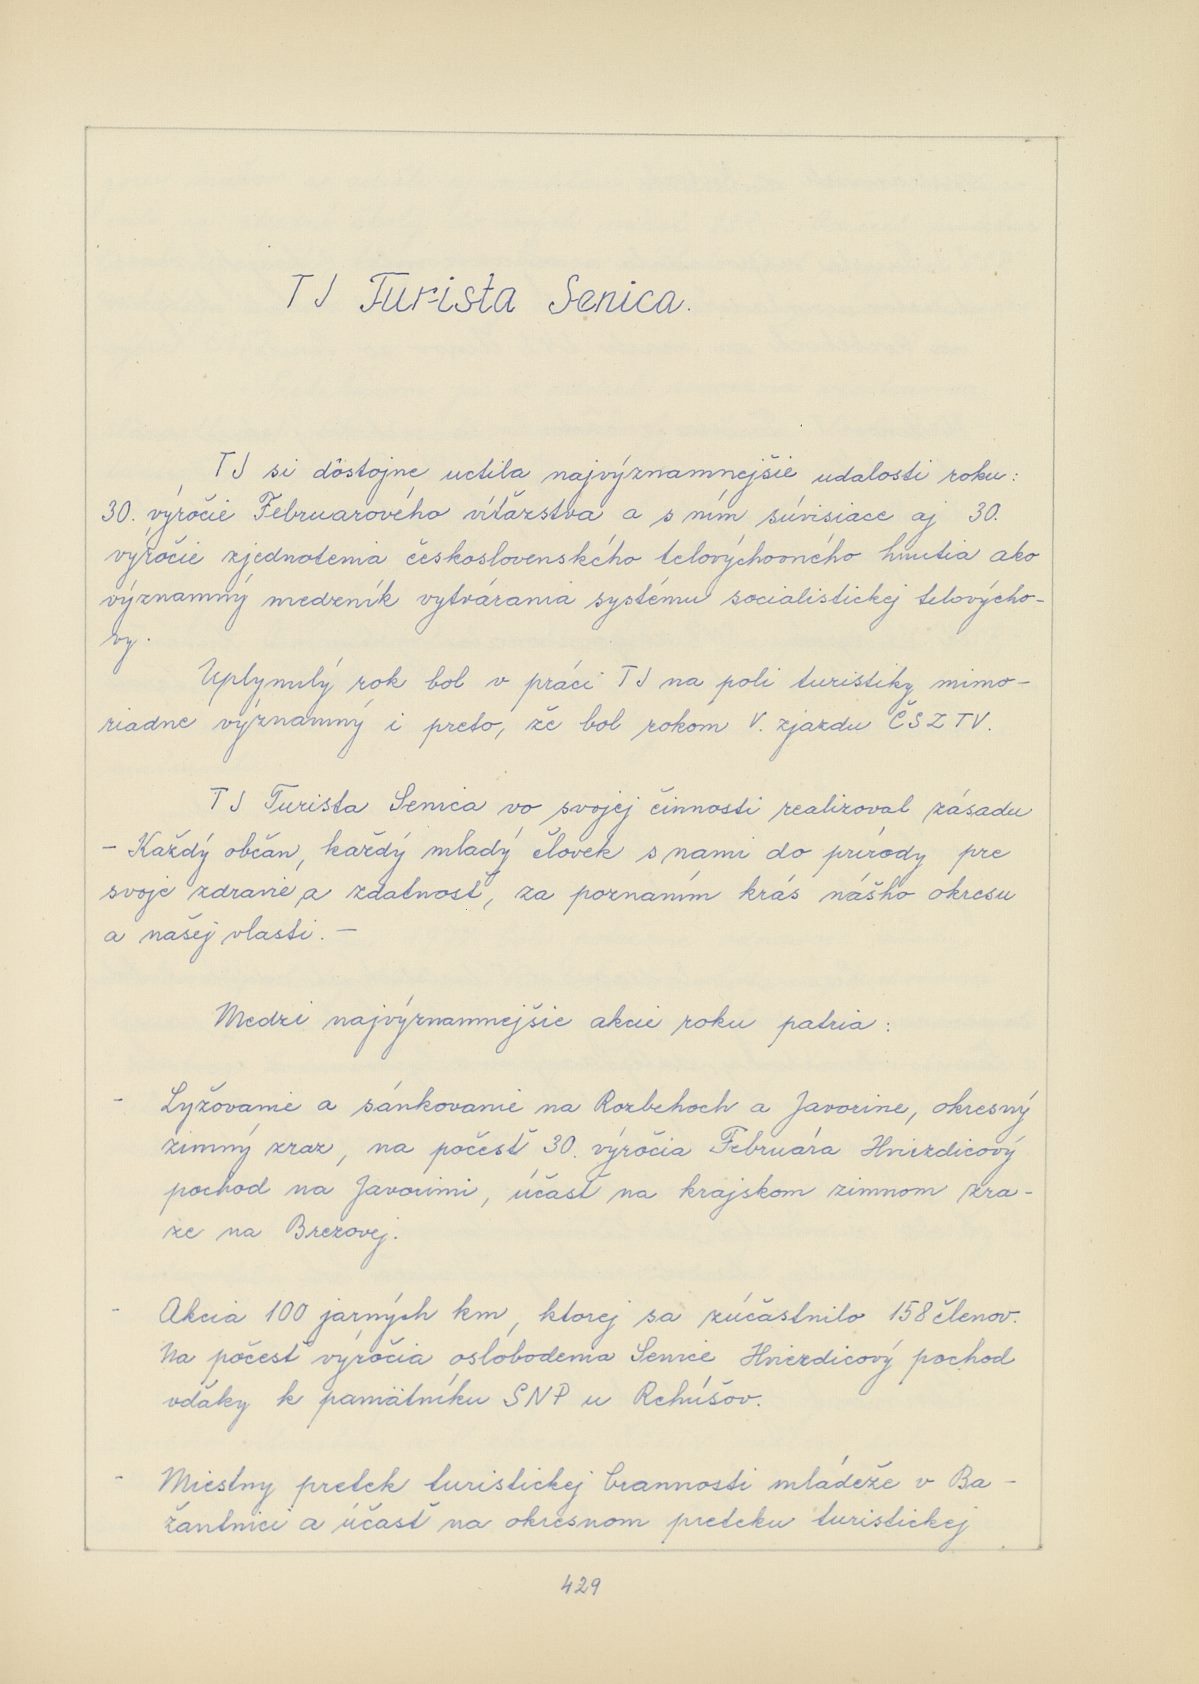 TJ Turista Senica.
TJ si dôstojne uctila najvýznamnejšie udalosti roku:
30. výročie Februarového víťazstva a s ním súvisiace aj 30.
výročie zjednotenia československého telovýchovného hnutia ako
významný medzník vytvárania systému socialistickej telovýcho-
vy.
Uplynulý rok bol v práci TJ na poli turistiky mimo-
riadne významný i preto, že bol rokom V. zjazdu ČSZTV.
TJ Turista Senica vo svojej činnosti realizoval zásadu
- Každý občan, každý mladý človek s nami do prírody pre
svoje zdravie a zdatnosť, za poznaním krás nášho okresu
a našej vlasti. -
Medzi najvýznamnejšie akcie roku patria:
- Lyžovanie a sánkovanie na Rozbehoch a Javorine, okresný
zimný zraz, na počesť 30. výročia Februára Hviezdicový
pochod na Javorini, účasť na krajskom zimnom zra-
ze na Brezovej.
- Akcia 100 jarných km, ktorej sa zúčastnilo 158 členov.
Na počesť výročia oslobodenia Senice Hviezdicový pochod
vďaky k pamätníku SNP u Rehúšov.
- Miestny pretek turistickej brannosti mládeže v Ba-
žantnici a účasť na okresnom preteku turistickej
429